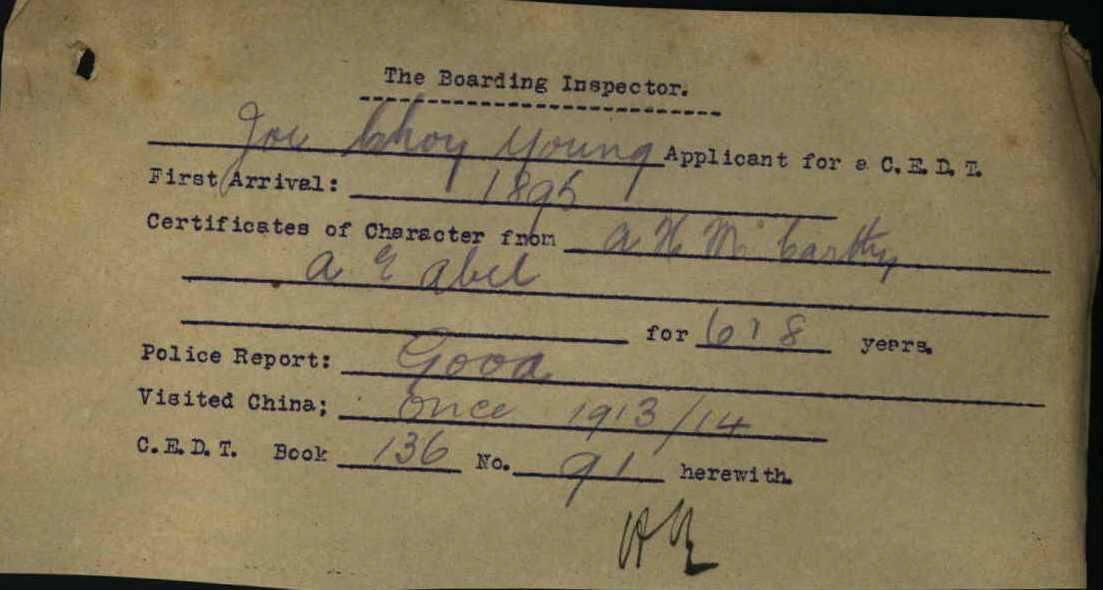 The Boarding Inspector.
Joe Choy Young Applicant for a C.E.D.T.
First Arrival: 1895
Certificates of Character from A H McCarthy
A E Abel
for 6 & 8 years.
Police Report: Good
Visited China; Once 1913/14
C.E.D.T. Book 136 No. 91 herewith.